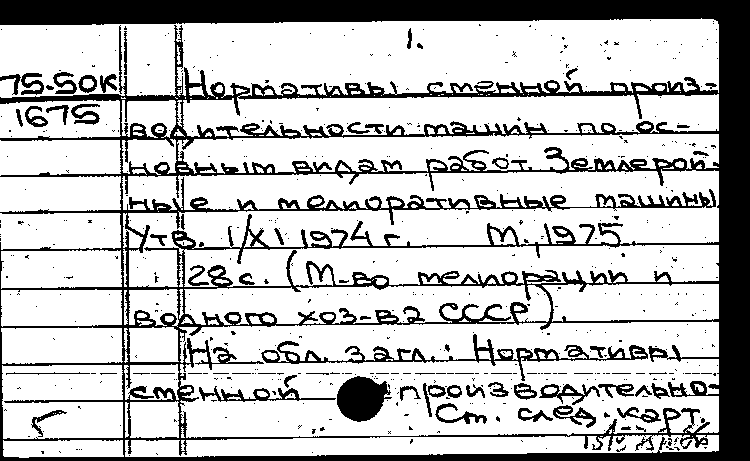 1.
75-50К
1675
Нормативы сменной произ-
водительности машин по ос-
новным видам работ. Землерой-
ные и мелиоративные машины
Утв. 1/XI 1974 г. М., 1975.
28 с. (М-во мелиорации и
водного хоз-ва СССР).
На обл. загл.: Нормативы
сменной производительно-
Ст. след. карт.